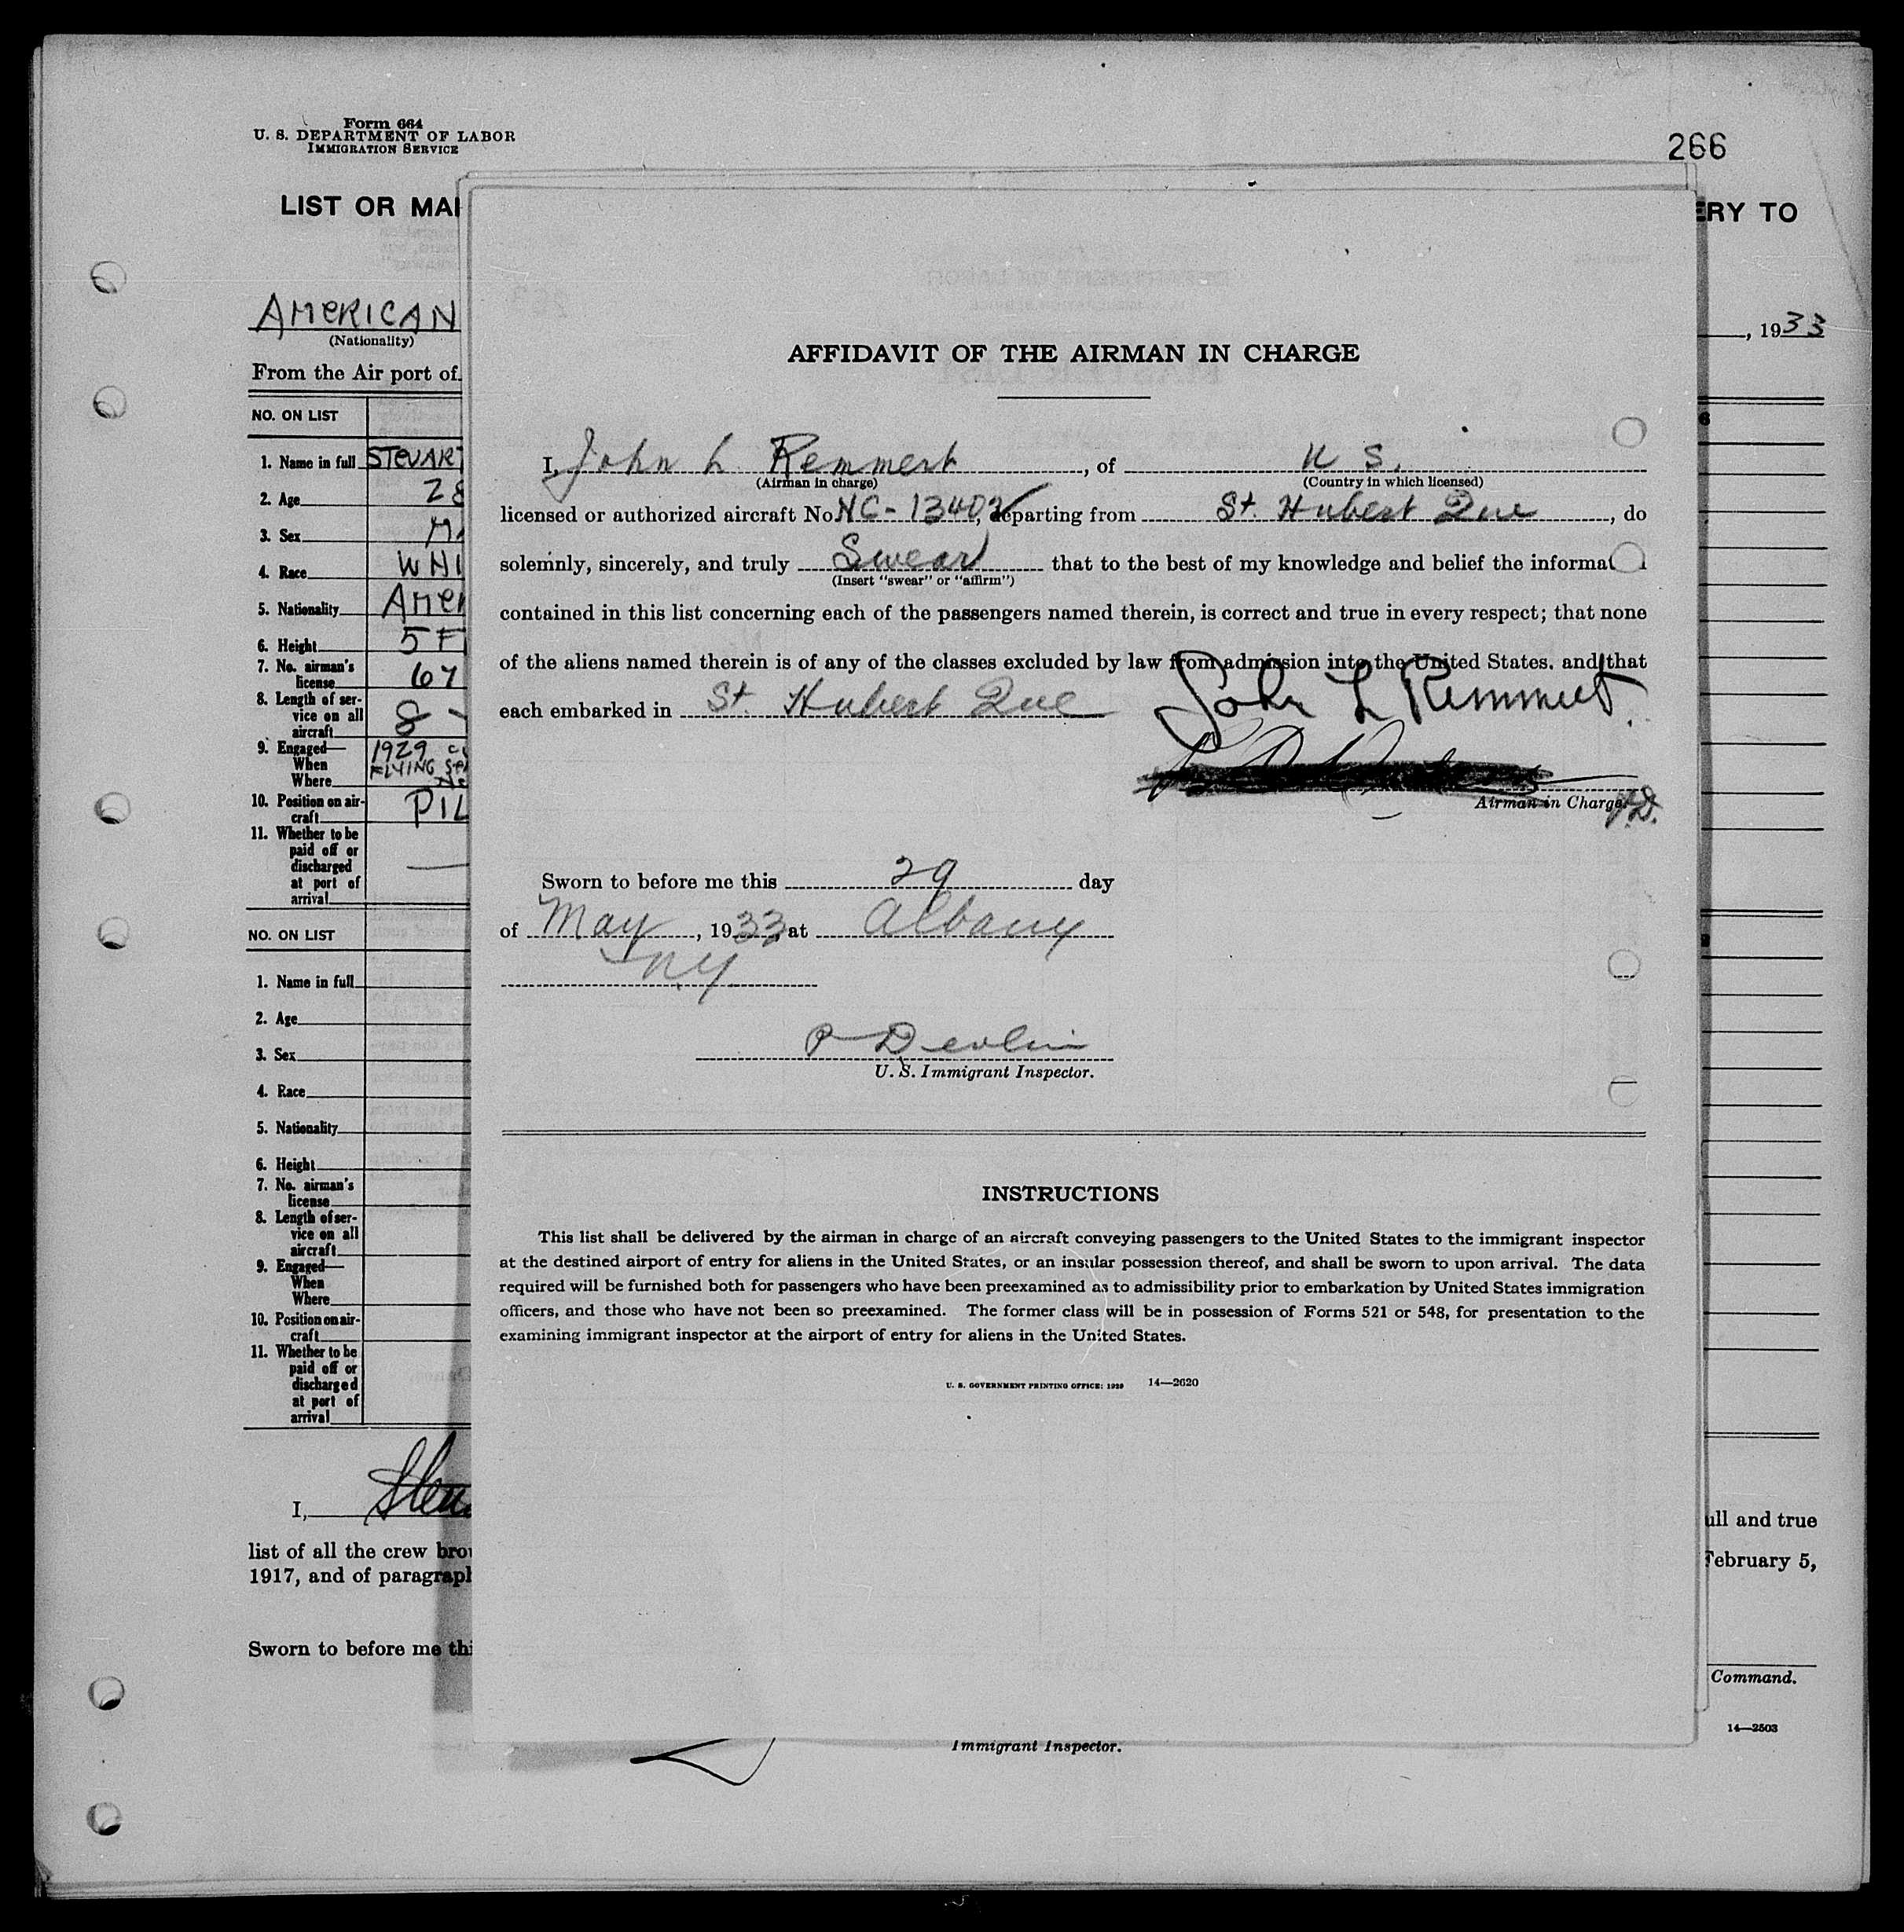 Form 664
U. S. DEPARTMENT OF LABOR
IMMIGRATION SERVICE
266
LIST OR MAI
ERY TO
AMERICAN
(Nationality)
, 1933
From the Air port of
NO. ON LIST
1. Name in full STEWART
2. Age 28
3. Sex MA
4. Race WHI
5. Nationality AMER
6. Height 5 F
7. No. airman's
license 67
8. Length of ser-
vice on all
aircraft 8
9. Engaged— 1929
When FLYING
Where
10. Position on air-
craft PIL
11. Whether to be
paid off or
discharged
at port of
arrival
NO. ON LIST
1. Name in full
2. Age
3. Sex
4. Race
5. Nationality
6. Height
7. No. airman's
license
8. Length of ser-
vice on all
aircraft
9. Engaged—
When
Where
10. Position on air-
craft
11. Whether to be
paid off or
discharged
at port of
arrival
I,
list of all the crew brou
1917, and of paragraph
Sworn to before me thi
AFFIDAVIT OF THE AIRMAN IN CHARGE
I, John L Remmert, of U S.
(Airman in charge) (Country in which licensed)
licensed or authorized aircraft No. NC-13402, departing from St. Hubert Que, do
solemnly, sincerely, and truly Swear that to the best of my knowledge and belief the informat
(Insert "swear" or "affirm")
contained in this list concerning each of the passengers named therein, is correct and true in every respect; that none
of the aliens named therein is of any of the classes excluded by law from admission into the United States, and that
each embarked in St. Hubert Que
John L Remmert
Airman in Charge.
P.D.
Sworn to before me this 29 day
of May, 1933 at Albany
N.Y
P Devlin
U. S. Immigrant Inspector.
INSTRUCTIONS
This list shall be delivered by the airman in charge of an aircraft conveying passengers to the United States to the immigrant inspector
at the destined airport of entry for aliens in the United States, or an insular possession thereof, and shall be sworn to upon arrival. The data
required will be furnished both for passengers who have been preexamined as to admissibility prior to embarkation by United States immigration
officers, and those who have not been so preexamined. The former class will be in possession of Forms 521 or 548, for presentation to the
examining immigrant inspector at the airport of entry for aliens in the United States.
U. S. GOVERNMENT PRINTING OFFICE: 1929 14—2620
ull and true
February 5,
Command.
14—2503
Immigrant Inspector.